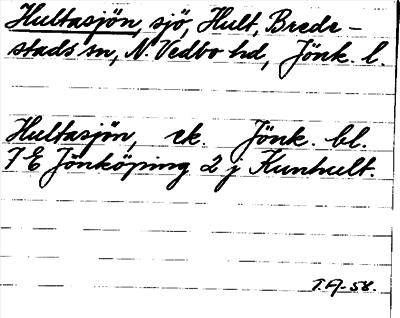 Hultasjön, sjö, Hult, Brede-
stads sn, N. Vedbo hd, Jönk. l.
Hultasjön, ek. Jönk. bl.
7 E Jönköping 2 j Kunhult.
T.A-58.